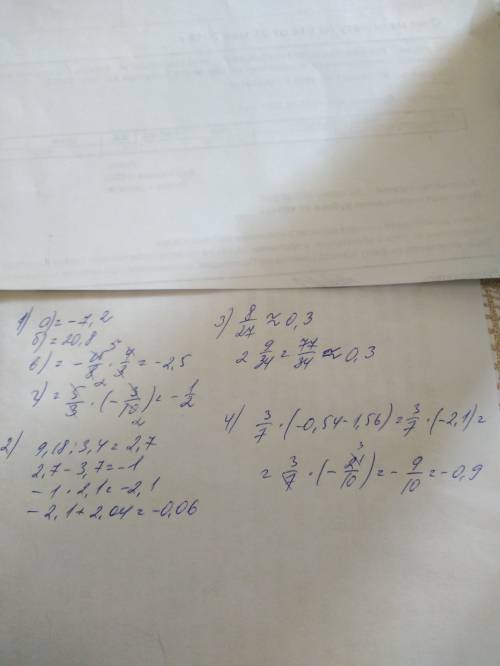 1) а) = -7,2
б) = 20,8
в) = - · = -2,5
г) = 5/3 · (-3/10) = -1/2
2) 9,18 : 3,4 = 2,7
2,7 - 3,7 = -1
-1 · 2,1 = -2,1
-2,1 + 2,04 = -0,06
3) 8/27 ≈ 0,3
2 9/34 = 77/34 ≈ 0,3
4) 3/7 · (-0,54 - 1,56) = 3/7 · (-2,1) =
= 3/7 · (-21/10) = -9/10 = -0,9